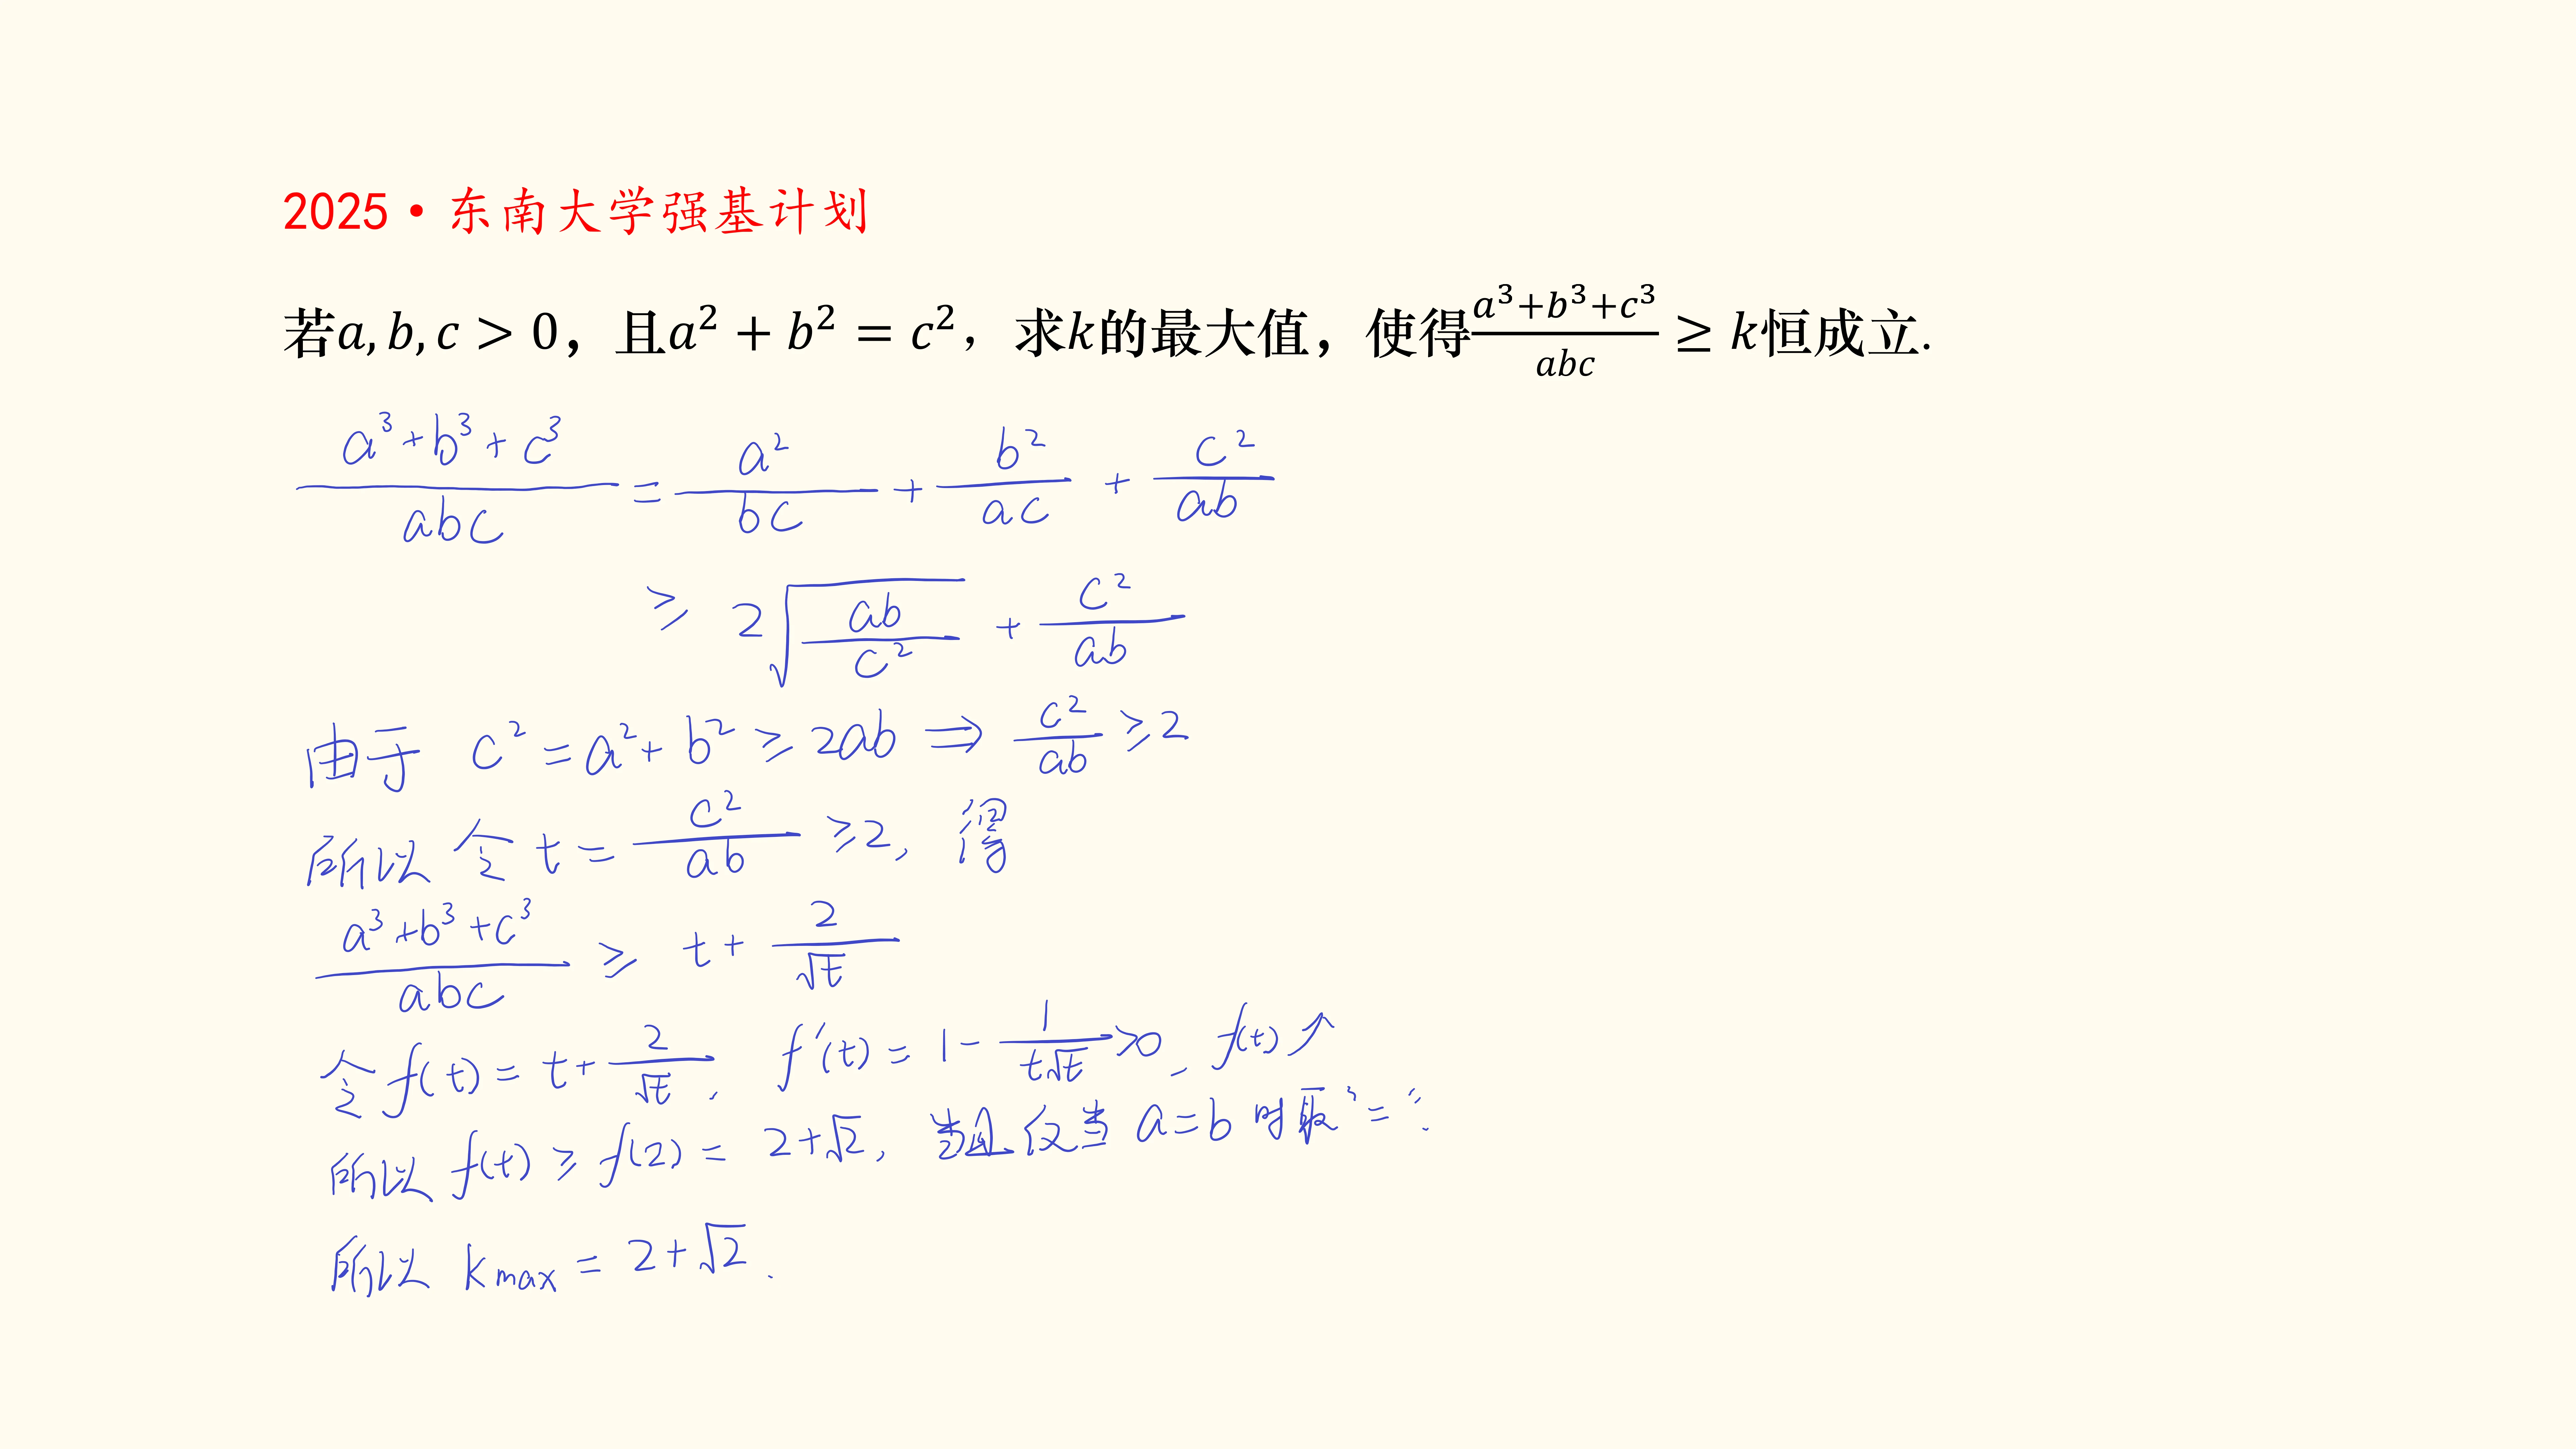 2025·东南大学强基计划
若a, b, c > 0，且a² + b² = c²，求k的最大值，使得(a³+b³+c³)/(abc) ≥ k恒成立.
(a³+b³+c³)/(abc) = a²/(bc) + b²/(ac) + c²/(ab)
≥ 2√(ab/c²) + c²/(ab)
由于 c² = a² + b² ≥ 2ab ⇒ c²/(ab) ≥ 2
所以 令 t = c²/(ab) ≥ 2, 得
(a³+b³+c³)/(abc) ≥ t + 2/√t
令 f(t) = t + 2/√t, f′(t) = 1 - 1/(t√t) > 0, f(t)↗
所以 f(t) ≥ f(2) = 2+√2, 当且仅当 a=b 时取"=".
所以 kmax = 2+√2.